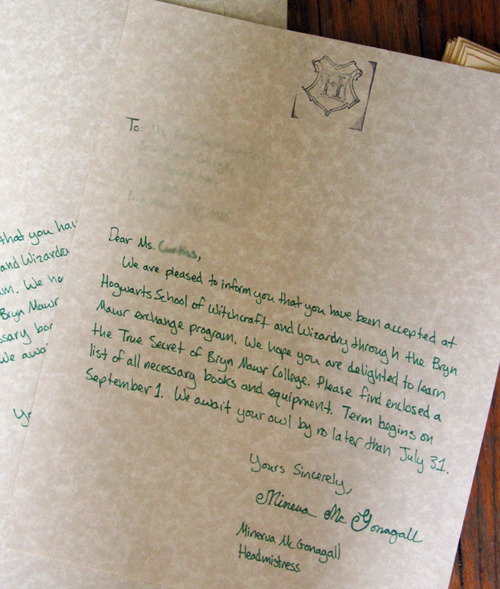 that you hav
and Wizardry
Bryn Mawr
H
To:
Dear Ms.
We are pleased to inform you that you have been accepted at
Hogwarts School of Witchcraft and Wizardry through the Bryn
Mawr exchange program. We hope you are delighted to learn
the True Secret of Bryn Mawr College. Please find enclosed a
list of all necessary books and equipment. Term begins on
September 1. We await your owl by no later than July 31.
Yours Sincerely,
Minerva McGonagall
Minerva McGonagall
Headmistress